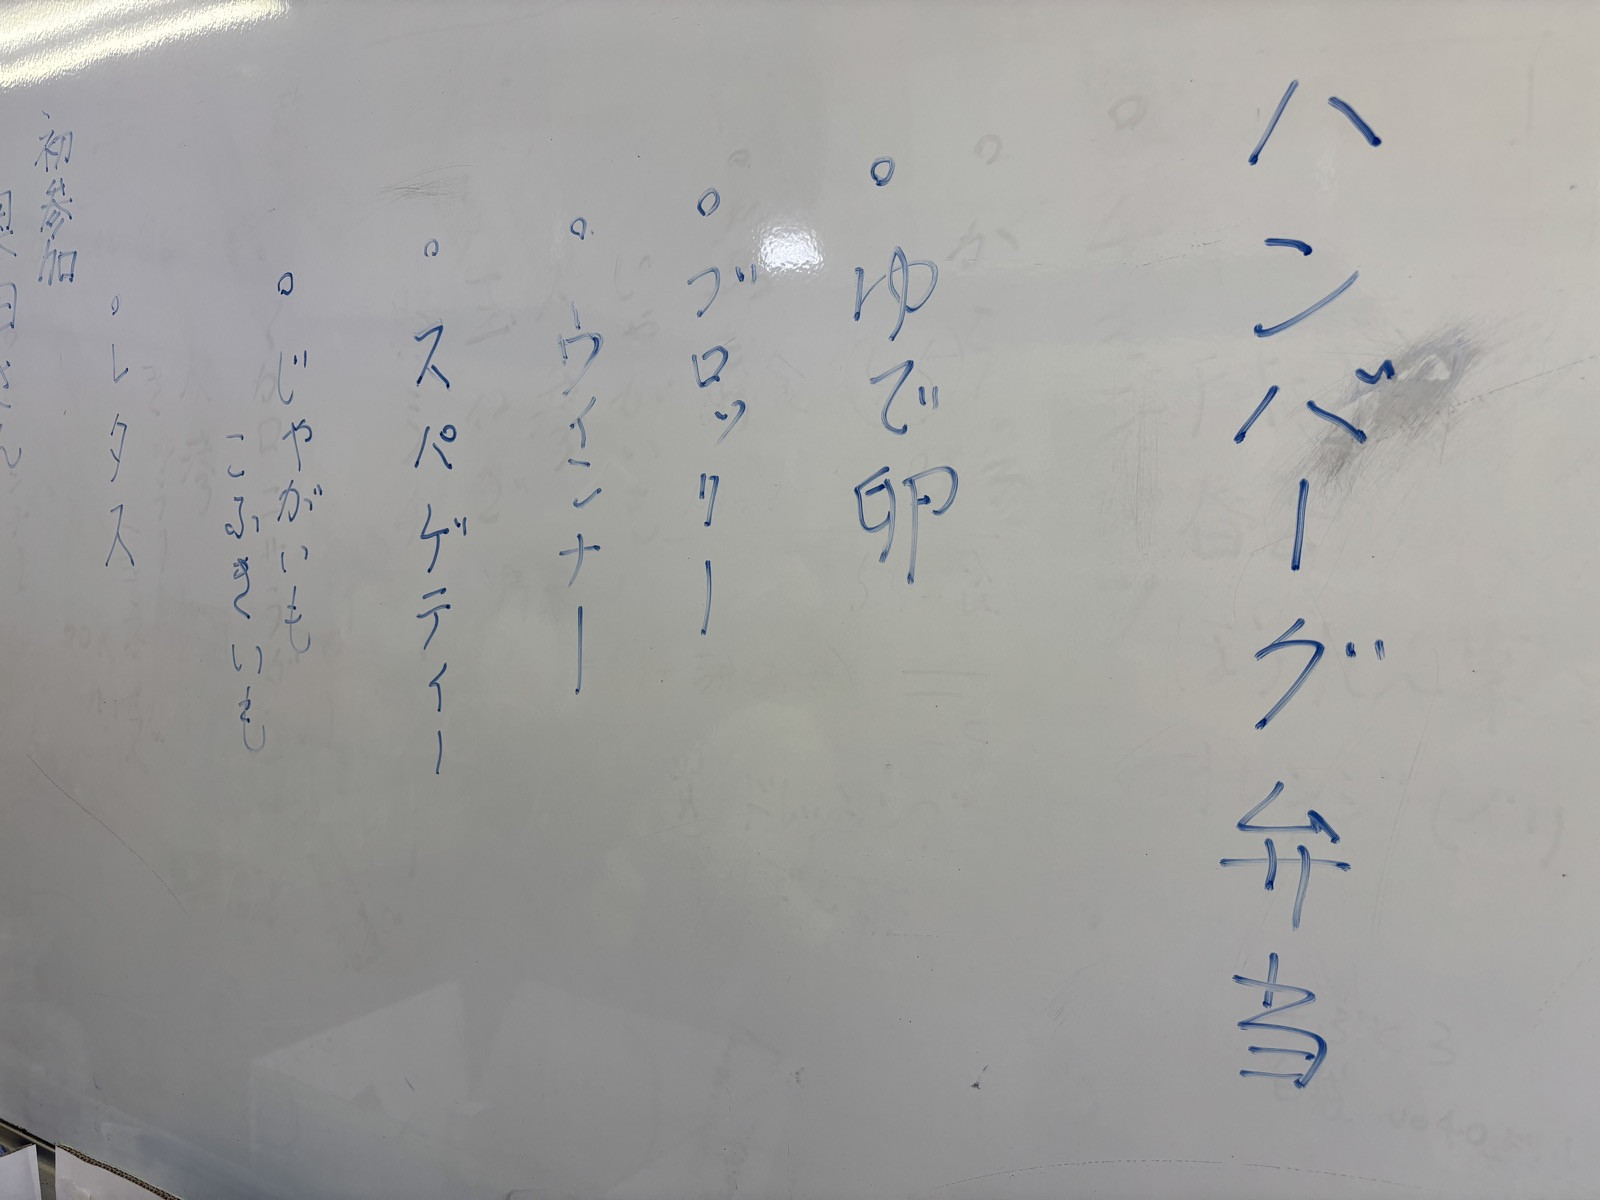 ハンバーグ弁当
。ゆで卵
。ブロッリー
。ウインナー
。スパゲティー
。じゃがいも
こふきいも
。レタス
初参加